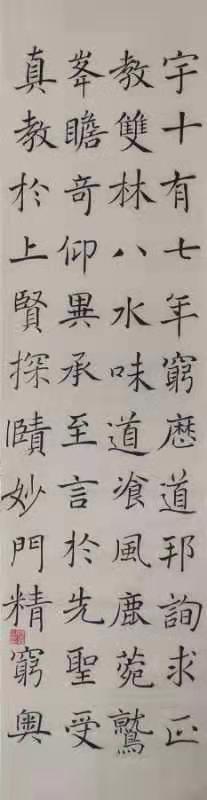 宇十有七年窮歷道邦詢求正
教雙林八水味道飡風鹿菀鷲
峯瞻奇仰異承至言於先聖受
真教於上賢探賾妙門精窮奥